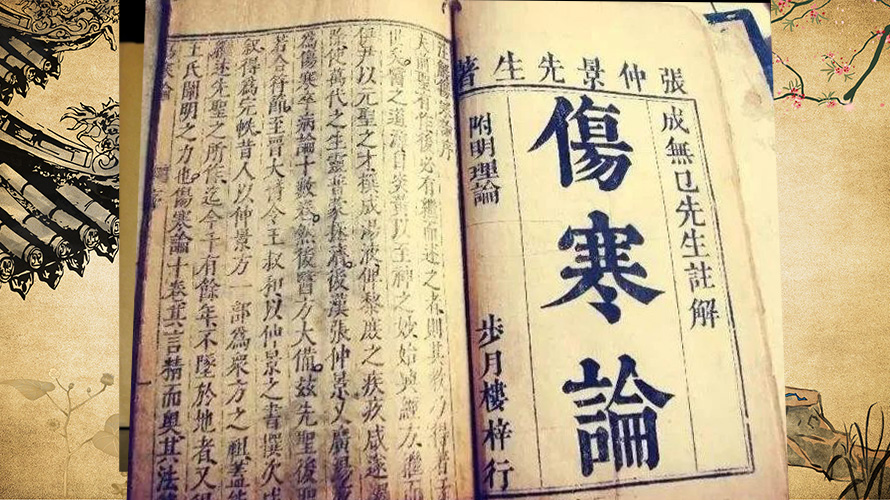 張仲景先生著
成無已先生註解
傷寒論
附明理論
步月樓梓行
註解傷寒論序
夫前聖有作後必有繼而述之者則其教乃得著于
世矣醫之道源自炎黃以至神之妙始興經方繼而
伊尹以元聖之才撰成湯液俾黎庶之疾疢咸遂
除使萬代之生靈普蒙拯濟後漢張仲景又廣湯
為傷寒卒病論十數卷然後醫方大備茲先聖後聖
若合符節至晉太醫令王叔和以仲景之書撰次成
敘得為完帙昔人以仲景方一部為眾方之祖蓋能
繼述先聖之所作迄今千有餘年不墜於地者又得
王氏闡明之力也傷寒論十卷其言精而奧其法
傷寒論